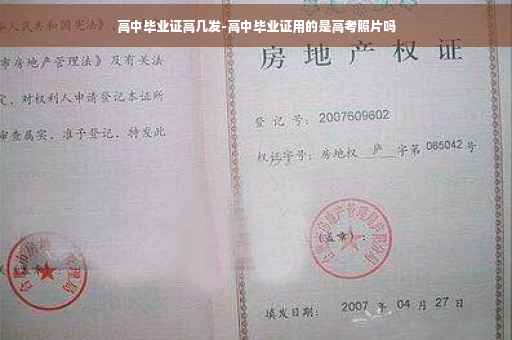 高中毕业证高几发-高中毕业证用的是高考照片吗
人民共和国宪法》
市房地产管理法》及有关法
定，对权利人申请登记本证所
审查属实，准予登记，特发此
房地产权证
登记号：2007609602
权证字号：房地权 庐 字第 065042 号
(盖章)：
填发日期：2007 年 04 月 27 日